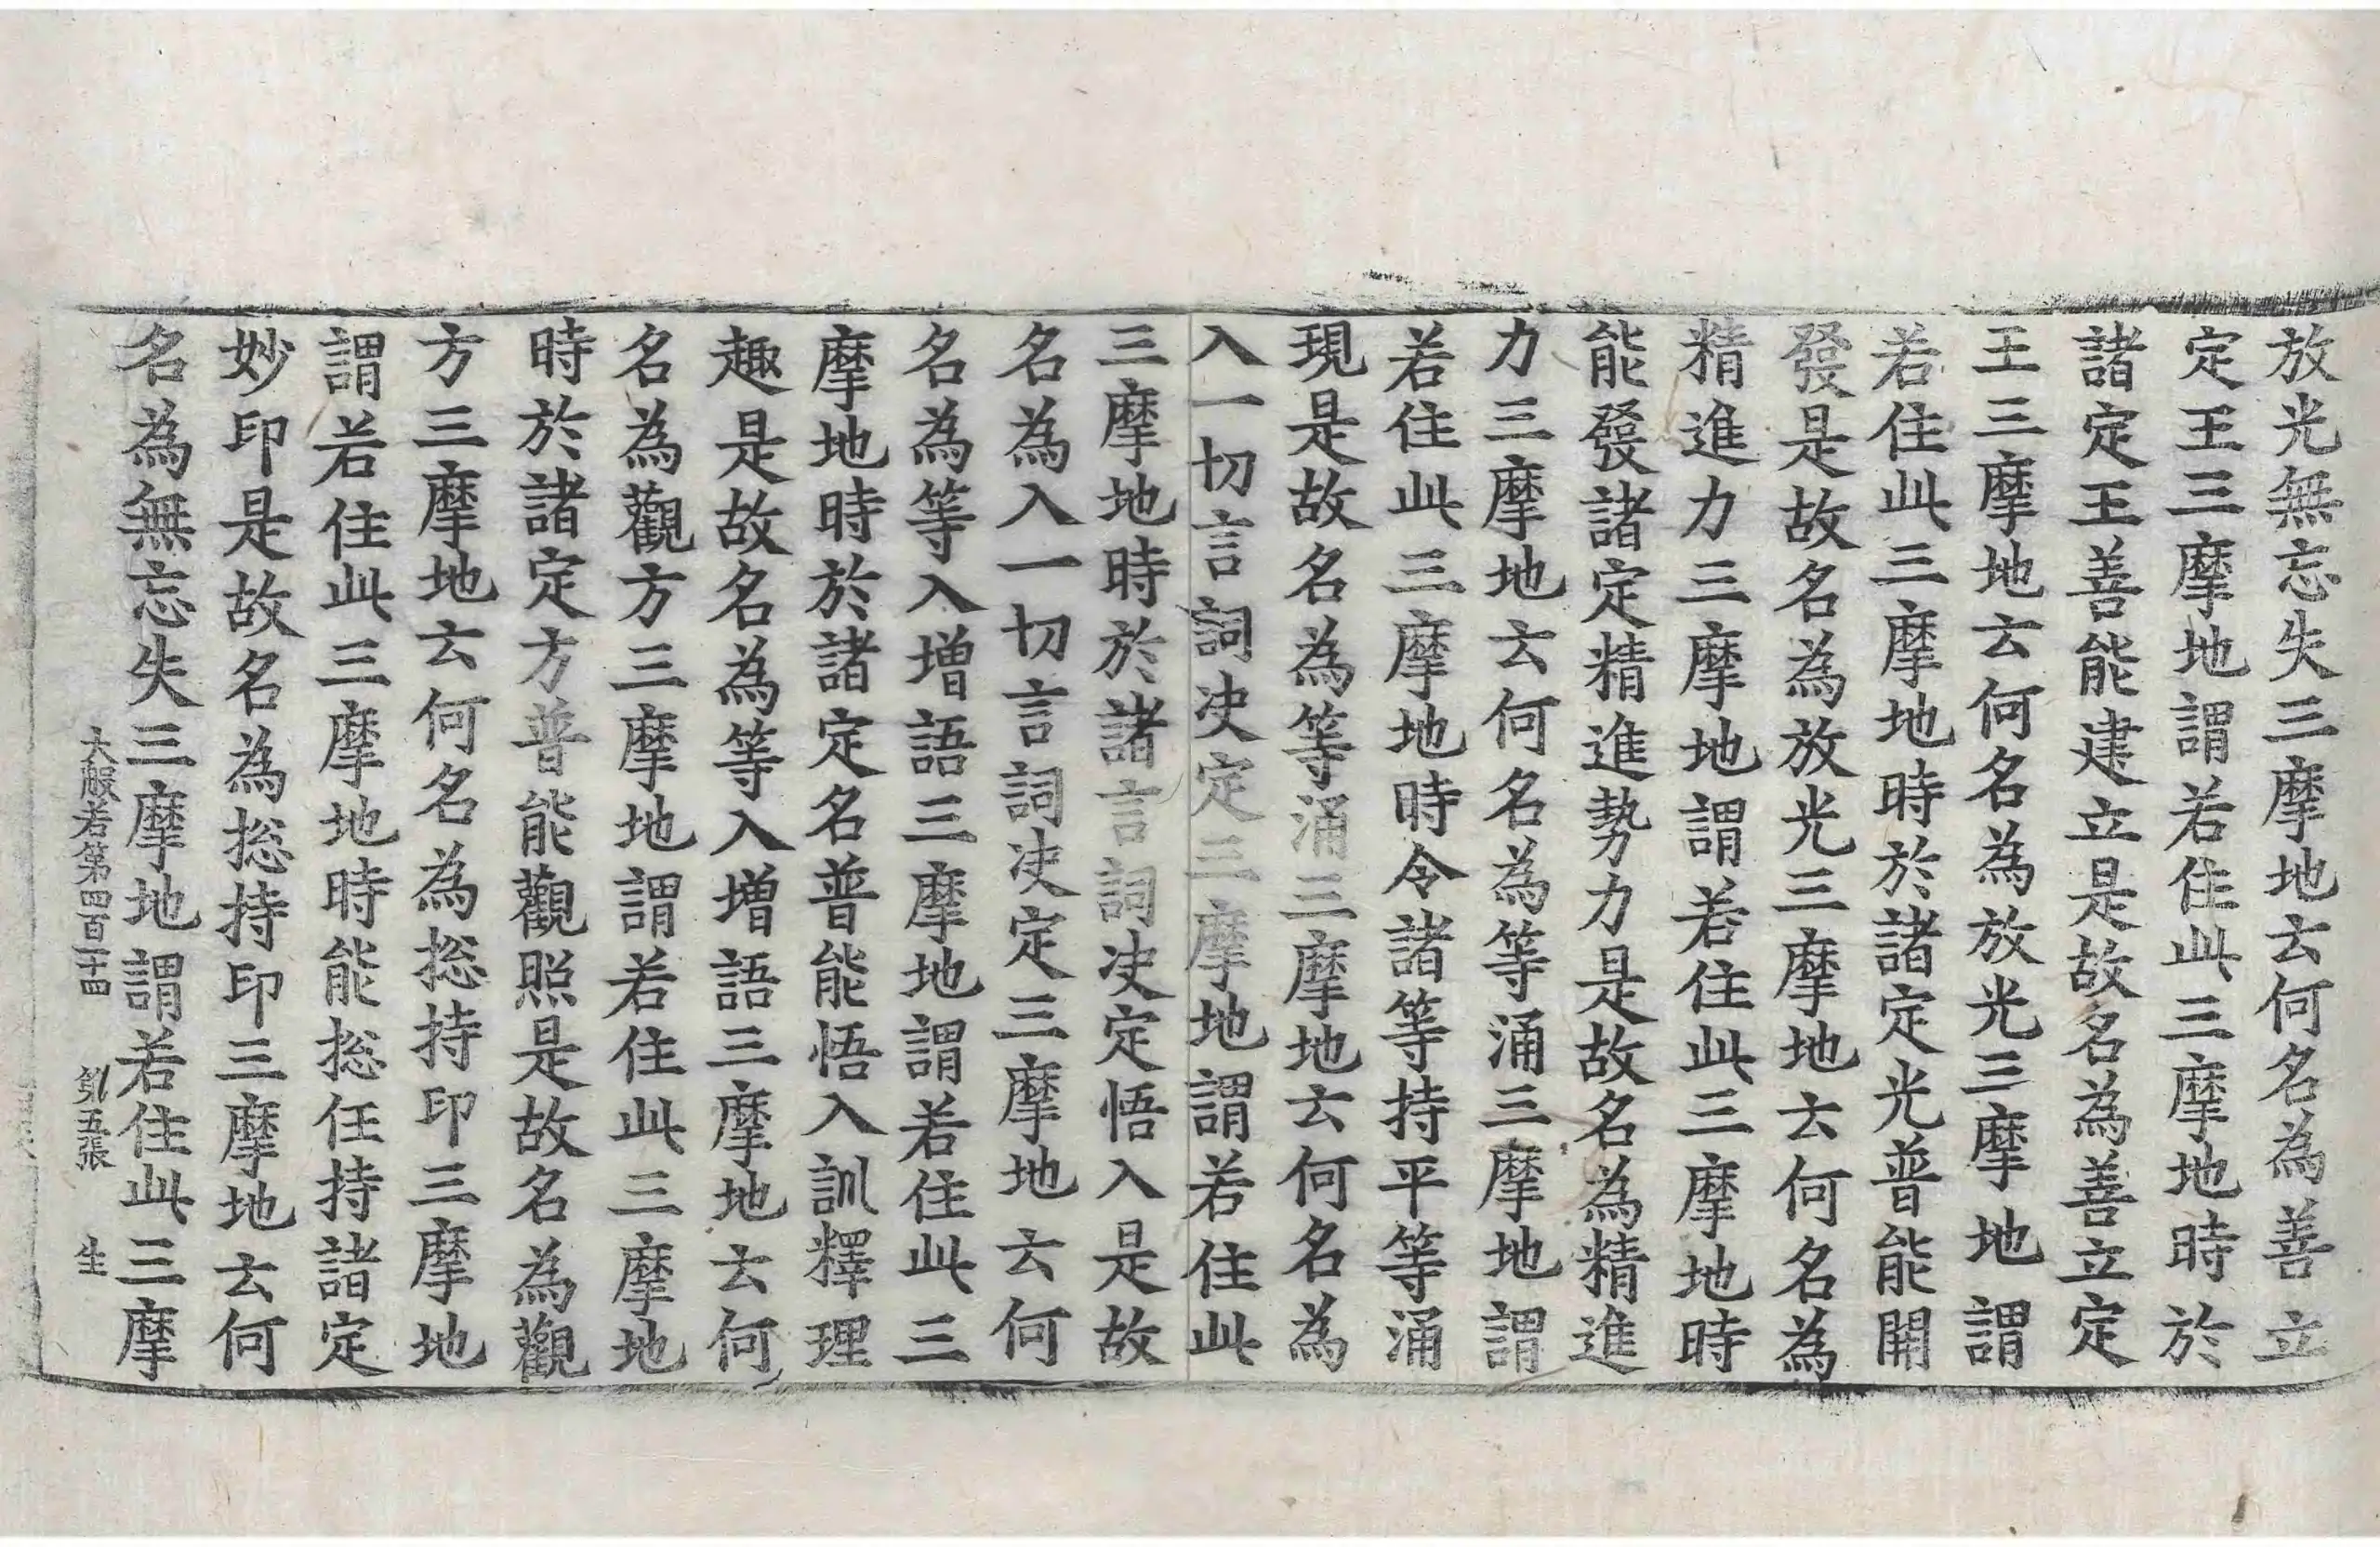 放光無忘失三摩地云何名為善立
定王三摩地謂若住此三摩地時於
諸定王善能建立是故名為善立定
王三摩地云何名為放光三摩地謂
若住此三摩地時於諸定光普能開
發是故名為放光三摩地云何名為
精進力三摩地謂若住此三摩地時
能發諸定精進勢力是故名為精進
力三摩地云何名為等涌三摩地謂
若住此三摩地時令諸等持平等涌
現是故名為等涌三摩地云何名為
入一切言詞决定三摩地謂若住此
三摩地時於諸言詞决定悟入是故
名為入一切言詞决定三摩地云何
名為等入增語三摩地謂若住此三
摩地時於諸定名普能悟入訓釋理
趣是故名為等入增語三摩地云何
名為觀方三摩地謂若住此三摩地
時於諸定方普能觀照是故名為觀
方三摩地云何名為捴持印三摩地
謂若住此三摩地時能捴任持諸定
妙印是故名為捴持印三摩地云何
名為無忘失三摩地謂若住此三摩
大般若第四百一十四 第五張 生